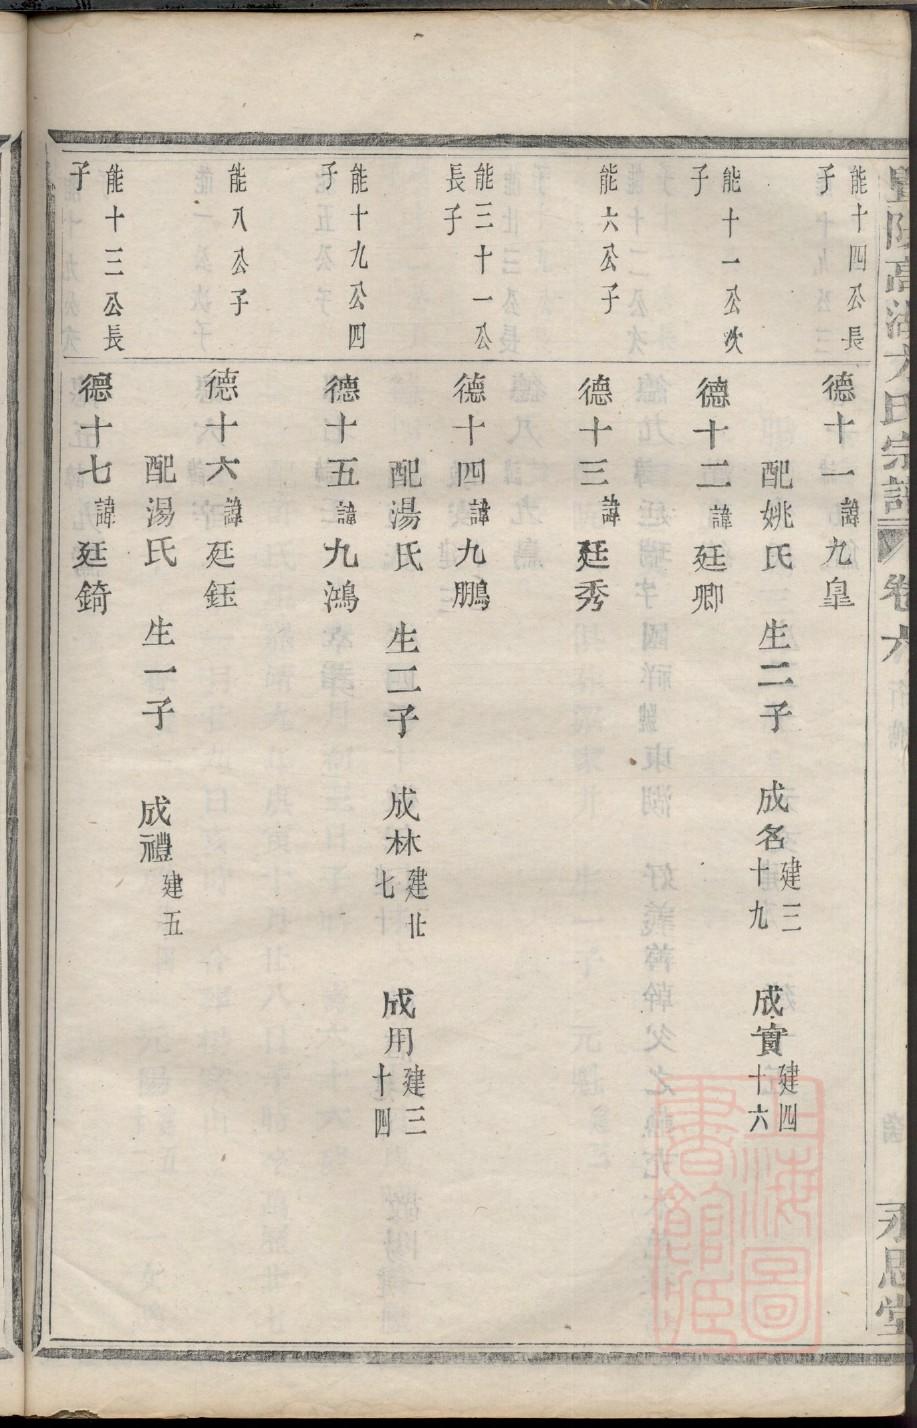 能十四公長
子
德十一諱九皐
配姚氏 生二子 成名建三十九 成實建四十六
能十一公次
子
德十二諱廷卿
能六公子
德十三諱廷秀
能三十一公
長子
德十四諱九鵬
配湯氏 生二子 成林建廿七 成用建三十四
能十九公四
子
德十五諱九鴻
能八公子
德十六諱廷鈺
配湯氏 生一子 成禮建五
能十三公長
子
德十七諱廷錡
氏宗譜 卷六 永思堂
上海圖書館藏